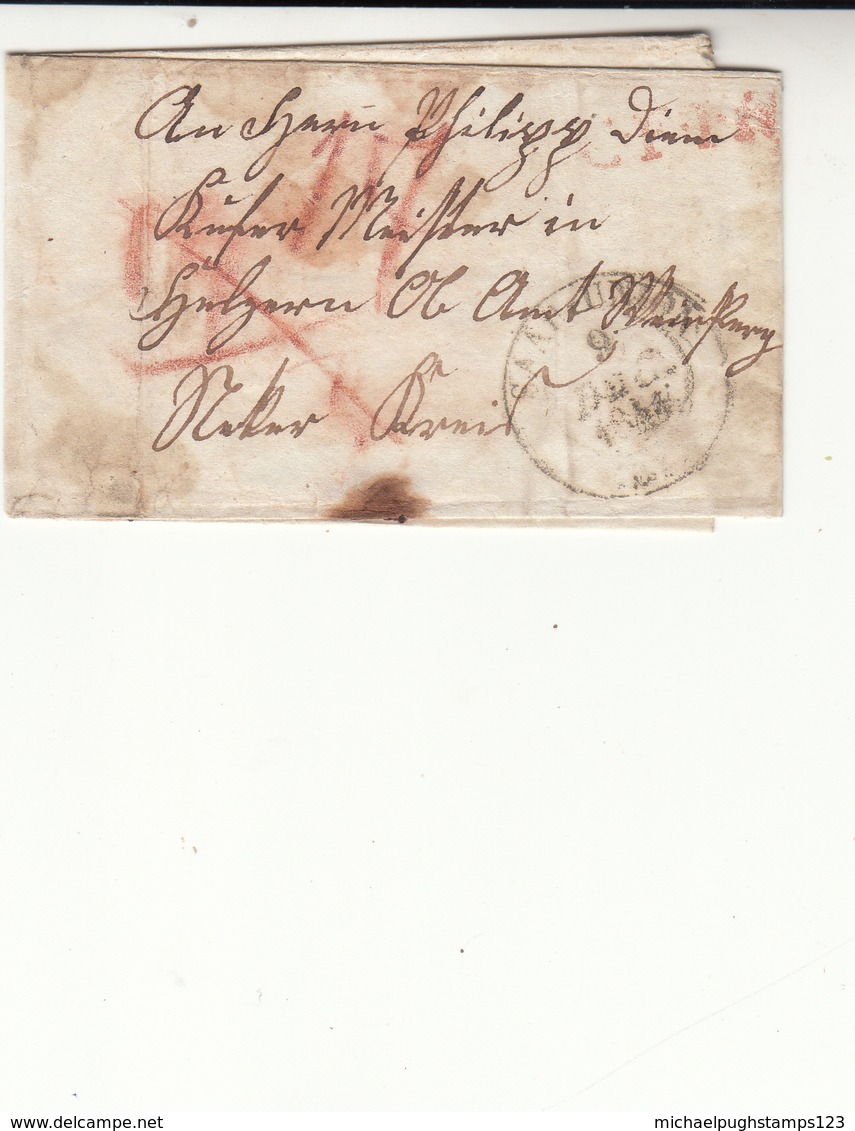 An Herrn Philipp Diem
Kufer Meister in
Hölzern Ob Amt Weinsperg
Neker Kreis
9
DEC.
1844
delcampe.net
michaelpughstamps123